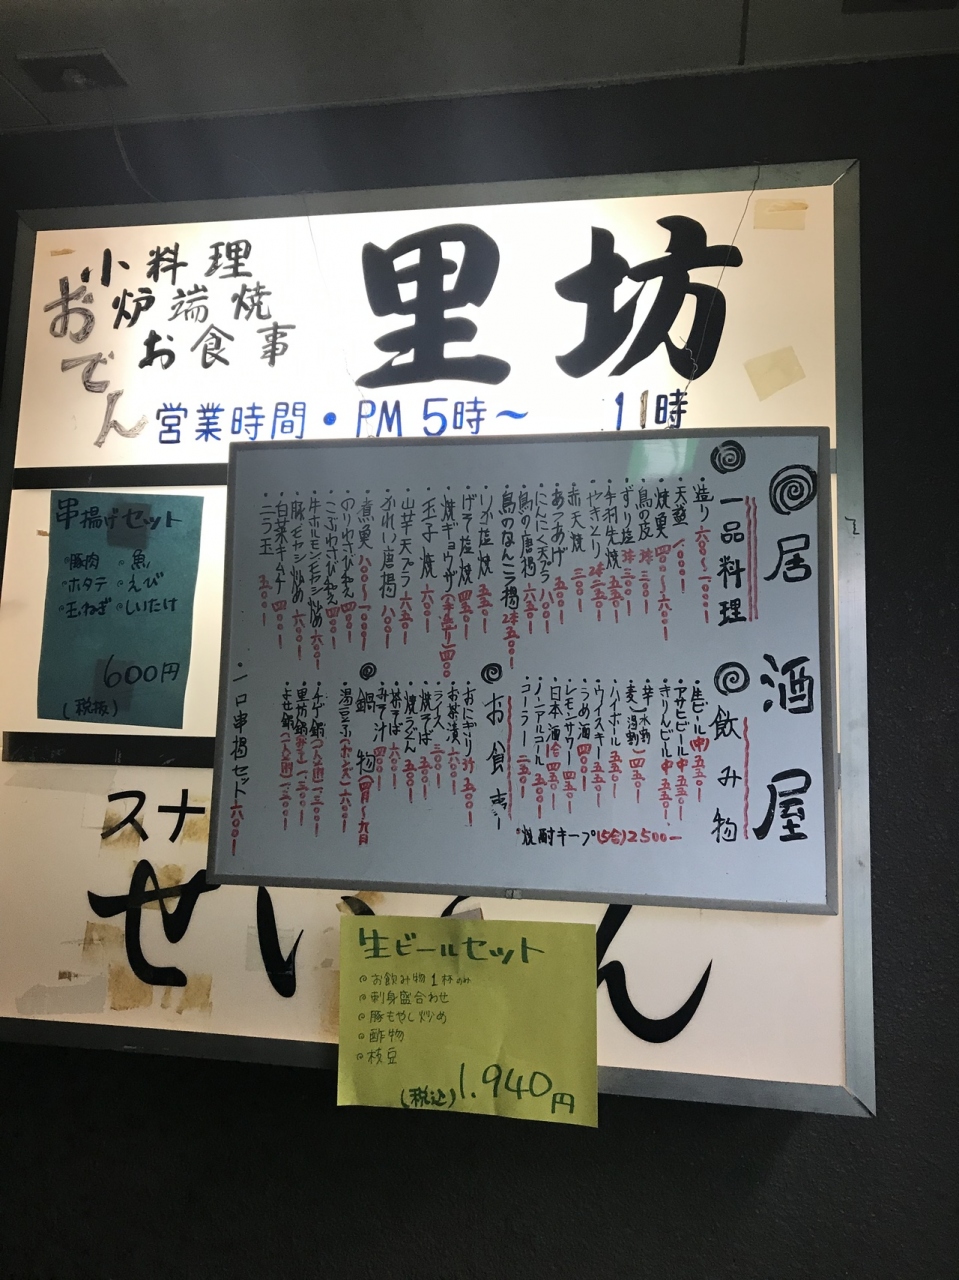 里坊
小料理
炉端焼
お食事
おでん
営業時間・PM5時〜 11時
居酒屋
一品料理
造り 六〇〇〜一〇〇〇
天盛 一〇〇〇
焼魚 四〇〇〜六〇〇
鳥の皮 2本 三〇〇
ずり塩 2本 三〇〇
手羽先焼 六〇〇
やきとり 2本 五〇〇
赤天焼 三〇〇
あつあげ 五〇〇
にんにく天プラ 八〇〇
鳥の唐揚 六五〇
鳥のなんこつ揚 2本 五〇〇
いか塩焼 五五〇
げそ塩焼 四五〇
焼ギョウザ
玉子焼 六〇〇
山芋天プラ 六五〇
かれい唐揚 八〇〇
煮魚 八〇〇〜一〇〇〇
のりわさび和え 四〇〇
こぶわさび和え 四〇〇
牛ホルモンモヤシ炒め 六〇〇
豚モヤシ炒め 六〇〇
白菜キムチ 四〇〇
ニラ玉 五〇〇
飲み物
生ビール(中) 五五〇
アサヒビール中 五五〇
きりんビール中 五五〇
ハイボール 五五〇
ウイスキー 五五〇
うめ酒 四五〇
レモンサワー 四五〇
日本酒 五〇〇
ノンアルコール 五五〇
コーラー 二五〇
焼酎キープ(5合)2500ー
お食事
おにぎり 五〇〇
お茶漬 五〇〇
ライス 三〇〇
焼そば 五〇〇
焼うどん 五〇〇
茶そば 六〇〇
みそ汁 四〇〇
鍋物(四月〜九日
湯豆ふ 六〇〇
チゲ鍋(一人前)一三〇〇
里坊鍋 一三〇〇
よせ鍋(一人前)一三〇〇
一口串揚セット 六〇〇
串揚げセット
・豚肉 ・魚
・ホタテ ・えび
・玉ねぎ ・しいたけ
600円
(税抜)
スナ
せい
ん
生ビールセット
お飲み物1杯のみ
刺身盛合わせ
豚もやし炒め
酢物
枝豆
(税込)1.940円